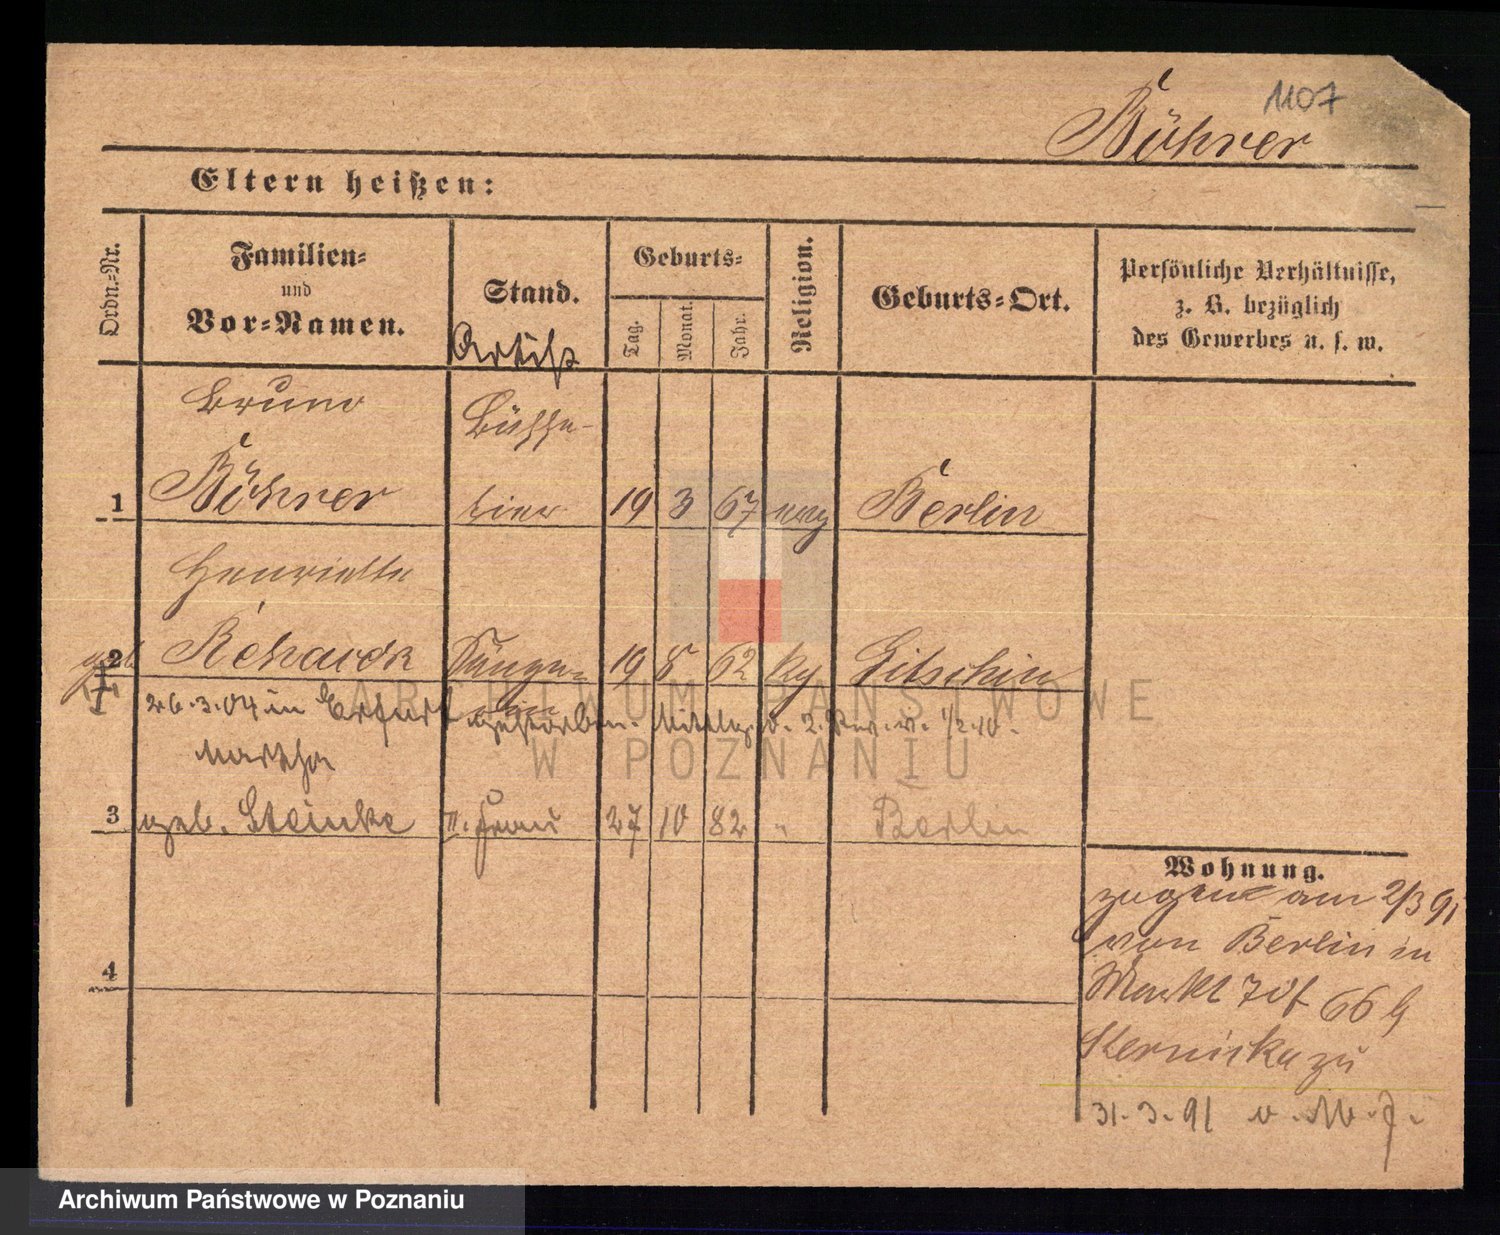 1107
Bührer
Eltern heißen:
Ordn.-Nr.
Familien-
und
Vor-Namen.
Stand.
Artist
Geburts-
Tag.
Monat.
Jahr.
Religion.
Geburts-Ort.
Persönliche Verhältnisse,
z. B. bezüglich
des Gewerbes u. s. w.
Bruno
Büffe-
1 Bührer tier 19 3 67 evg Berlin
Henriette
geb. 2 Sänge- 19 8 62 kg Gitschin
rin
26.3.04 in Erfurt gestorben. Mitteilg. v. 2. 1/2.10.
Martha
3 geb. Steinke II. Frau 27 10 82 " Berlin
4
Wohnung.
zugez am 2/3 91
von Berlin in
Markt 70 66 b
zu
31.3.91 v. M. J.
ARCHIWUM PAŃSTWOWE
W POZNANIU
Archiwum Państwowe w Poznaniu